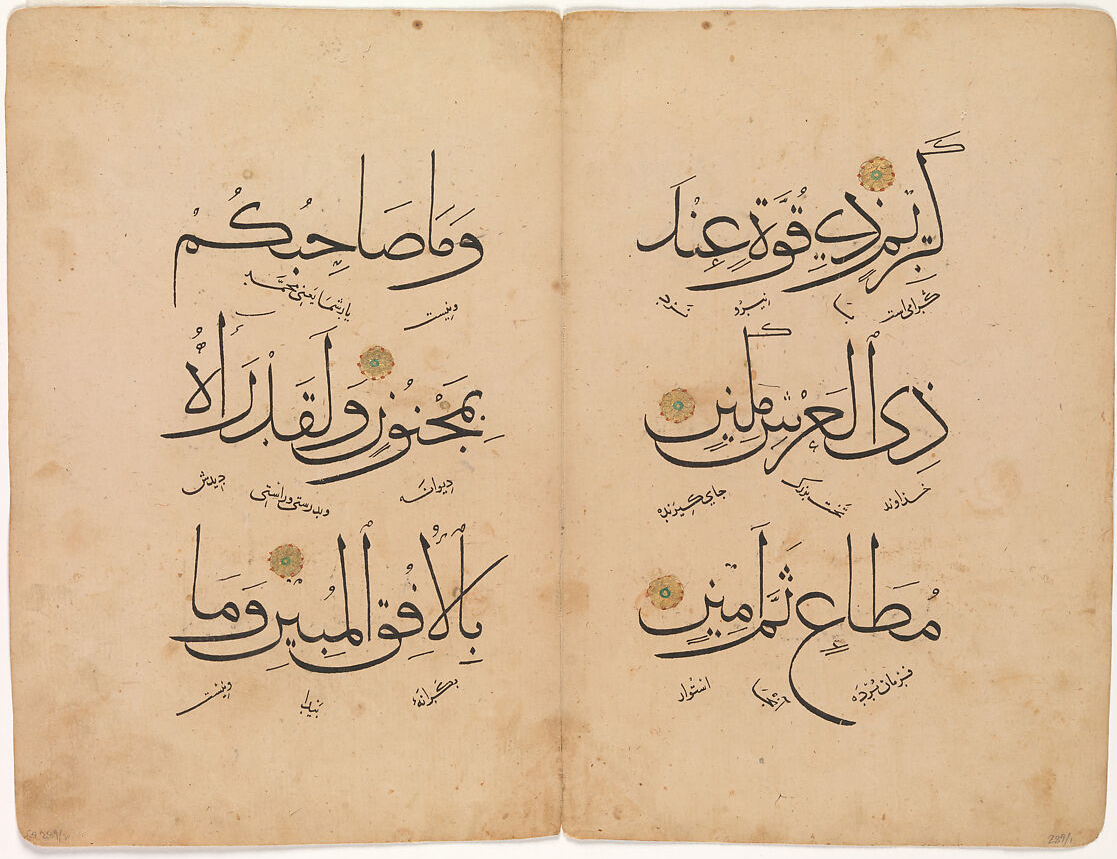 كَرِيمٍ ذِي قُوَّةٍ عِنْدَ
گرامی است با نیرو نزد
ذِي الْعَرْشِ مَكِينٍ
خداوند تخت بزرک جای کیرنده
مُطَاعٍ ثَمَّ أَمِينٍ
فرمان برده آنجا استوار
وَمَا صَاحِبُكُمْ
ونیست یارشما یعنی محمّد
بِمَجْنُونٍ وَلَقَدْ رَآهُ
دیوانه وبدرستی وراستی دیدش
بِالْأُفُقِ الْمُبِينِ وَمَا
بکرانهٔ پیدا ونیست